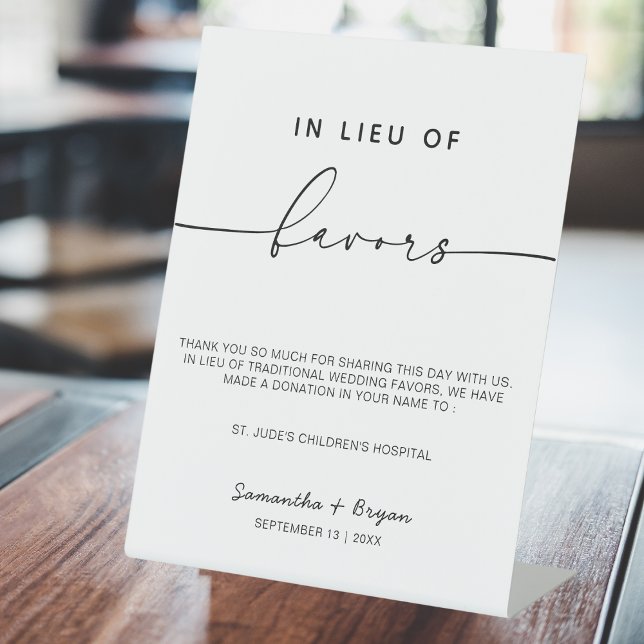 IN LIEU OF
favors
THANK YOU SO MUCH FOR SHARING THIS DAY WITH US.
IN LIEU OF TRADITIONAL WEDDING FAVORS, WE HAVE
MADE A DONATION IN YOUR NAME TO :
ST. JUDE'S CHILDREN'S HOSPITAL
Samantha + Bryan
SEPTEMBER 13 | 20XX